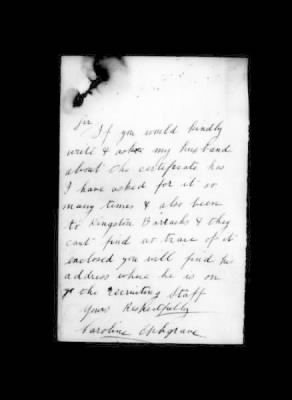 Sir
If you would kindly
write & ask my husband
about the certificate has
I have asked for it so
many times & also been
to Kingston Barracks & they
cant find at trace of it
enclosed you will find he
address where he is on
the recruiting Staff
Yours Respectfully
Caroline